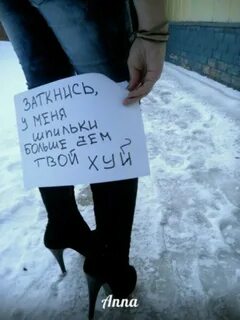 ЗАТКНИСЬ,
У МЕНЯ
ШПИЛЬКИ
БОЛЬШЕ ЧЕМ
ТВОЙ ХУЙ
Anna